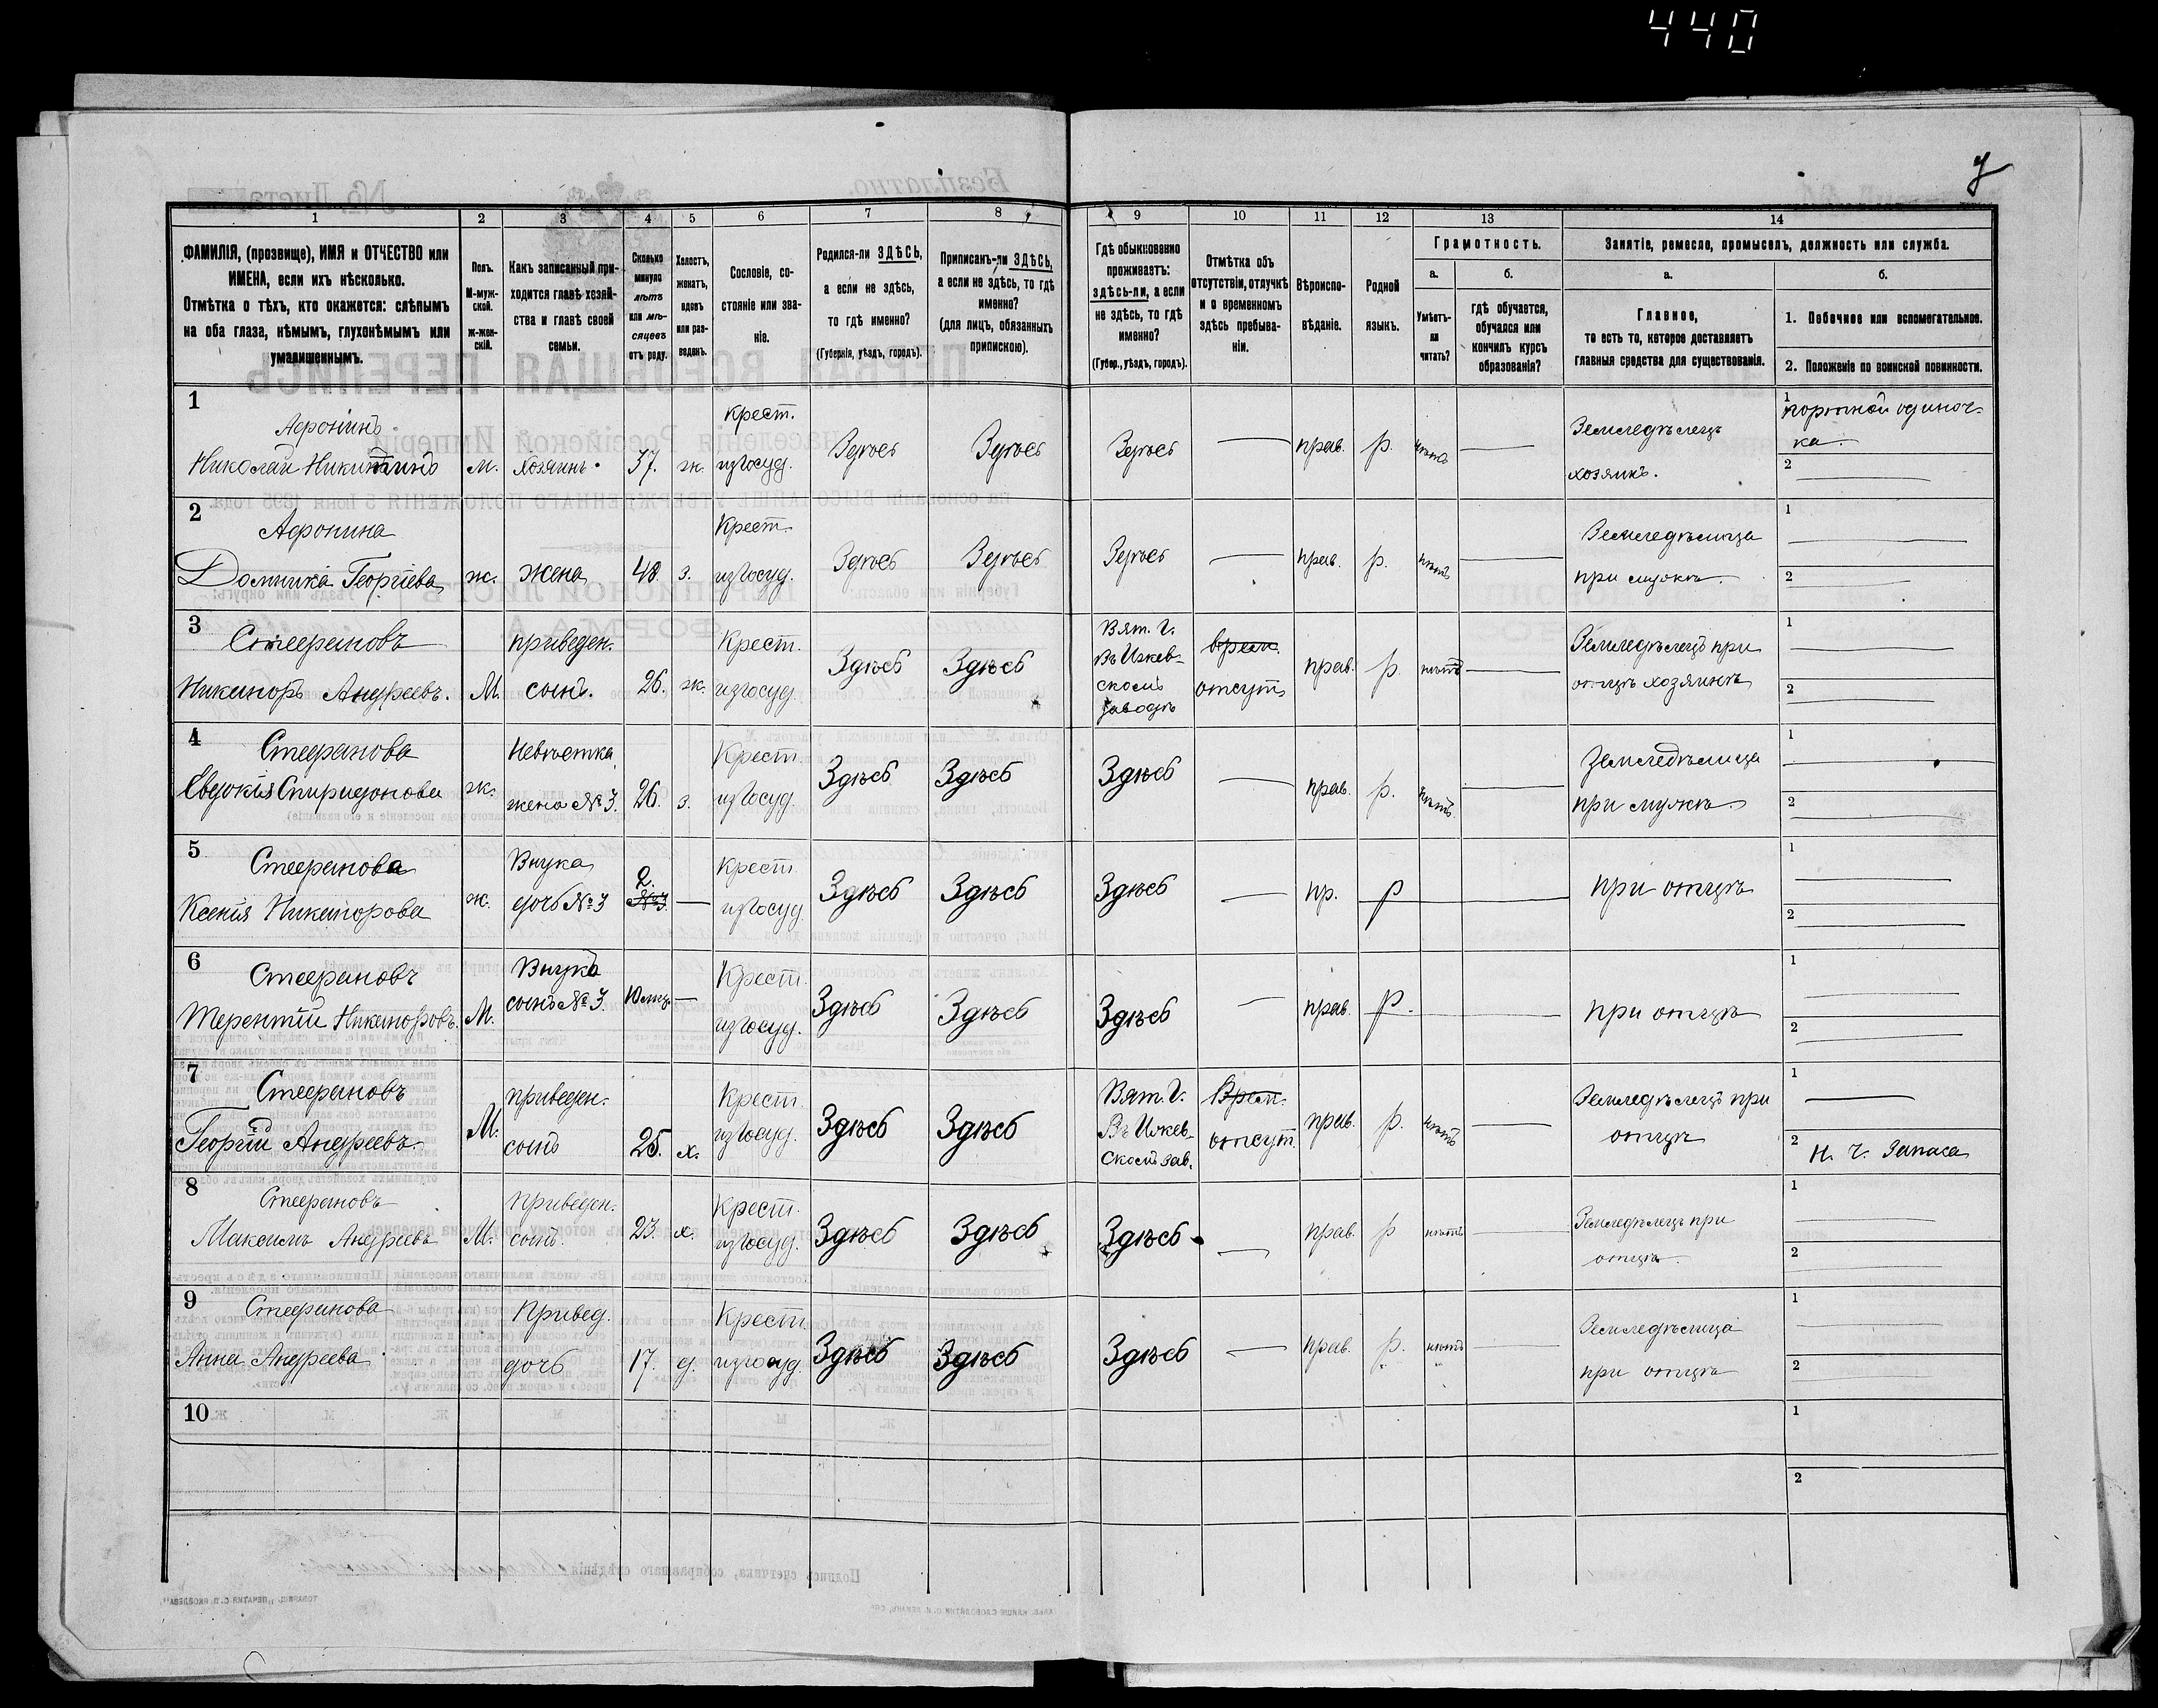 440
1 2 3 4 5 6 7 8 9 10 11 12 13 14
ФАМИЛІЯ, (прозвище), ИМЯ и ОТЧЕСТВО или ИМЕНА, если ихъ нѣсколько.
Отмѣтка о тѣхъ, кто окажется: слѣпымъ на оба глаза, нѣмымъ, глухонѣмымъ или умалишеннымъ.
Полъ. М-мужской. Ж-женскій.
Какъ записанный приходится главѣ хозяйства и главѣ своей семьи.
Сколько минуло лѣтъ или мѣсяцевъ отъ роду.
Холостъ, женатъ, вдовъ или разведенъ.
Сословіе, состояніе или званіе.
Родился-ли ЗДѢСЬ, а если не здѣсь, то гдѣ именно?
(Губернія, уѣздъ, городъ).
Приписанъ-ли ЗДѢСЬ, а если не здѣсь, то гдѣ именно?
(для лицъ, обязанныхъ припискою).
Гдѣ обыкновенно проживаетъ: здѣсь-ли, а если не здѣсь, то гдѣ именно?
(Губер., уѣздъ, городъ).
Отмѣтка объ отсутствіи, отлучкѣ и о временномъ здѣсь пребываніи.
Вѣроисповѣданіе.
Родной языкъ.
Грамотность.
а. Умѣетъ-ли читать?
б. гдѣ обучается, обучался или кончилъ курсъ образованія?
Занятіе, ремесло, промыселъ, должность или служба.
а. Главное, то есть то, которое доставляетъ главныя средства для существованія.
б.
1. Побочное или вспомогательное.
2. Положеніе по воинской повинности.
1
Афонинъ крест. 1 портной одиноч-
Николай Никитинъ м. Хозяинъ. 57. ж. изъ госуд. Здѣсь Здѣсь Здѣсь — прав. р. нѣтъ — Земледѣлецъ ка.
хозяинъ. 2 —
2
Афонина Крест. Земледѣлица 1 —
Домника Георгіева ж. жена 48. з. изъ госуд. Здѣсь Здѣсь Здѣсь — прав. р. нѣтъ — при мужѣ 2 —
3
Стефановъ приведен. Крест. Вят. г. врем. Земледѣлецъ при 1 —
Никаноръ Андреевъ. М. сынъ. 26. ж. изъ госуд. Здѣсь Здѣсь Въ Ижев-
скомъ отсут. прав. р. нѣтъ — отцѣ хозяинѣ 2 —
заводѣ
4
Стефанова Невѣстка, Крест. Земледѣлица 1 —
Евдокія Спиридонова ж. жена № 3. 26. з. изъ госуд. Здѣсь Здѣсь Здѣсь — прав. р. нѣтъ — при мужѣ 2 —
5
Стефанова Внука 2. крест. 1 —
Ксенія Никанорова ж. дочь № 3 № 3. — изъ госуд. Здѣсь Здѣсь Здѣсь — пр. р — при отцѣ 2 —
6
Стефановъ Внукъ Крест. 1 —
Терентій Никаноровъ. М. сынъ № 3. 10 мѣц. — изъ госуд. Здѣсь Здѣсь Здѣсь — прав. р. — при отцѣ 2 —
7
Стефановъ приведен. Крест. Вят. г. Врем. Земледѣлецъ при 1 —
Георгій Андреевъ. М. сынъ 25. х. изъ госуд. Здѣсь Здѣсь Въ Ижев- отсут. прав. р. нѣтъ — отцѣ 2 Н. Ч. Запаса
скомъ зав.
8
Стефановъ Приведен. Крест. Земледѣлецъ при 1 —
Максимъ Андреевъ М. сынъ. 23. х. изъ госуд. Здѣсь Здѣсь Здѣсь — прав. р нѣтъ — отцѣ. 2 —
9
Стефанова Привед. Крест. Земледѣлица 1 —
Анна Андреева дочь 17. д. изъ госуд. Здѣсь Здѣсь Здѣсь — прав. р. нѣтъ — при отцѣ 2 —
10 1
2